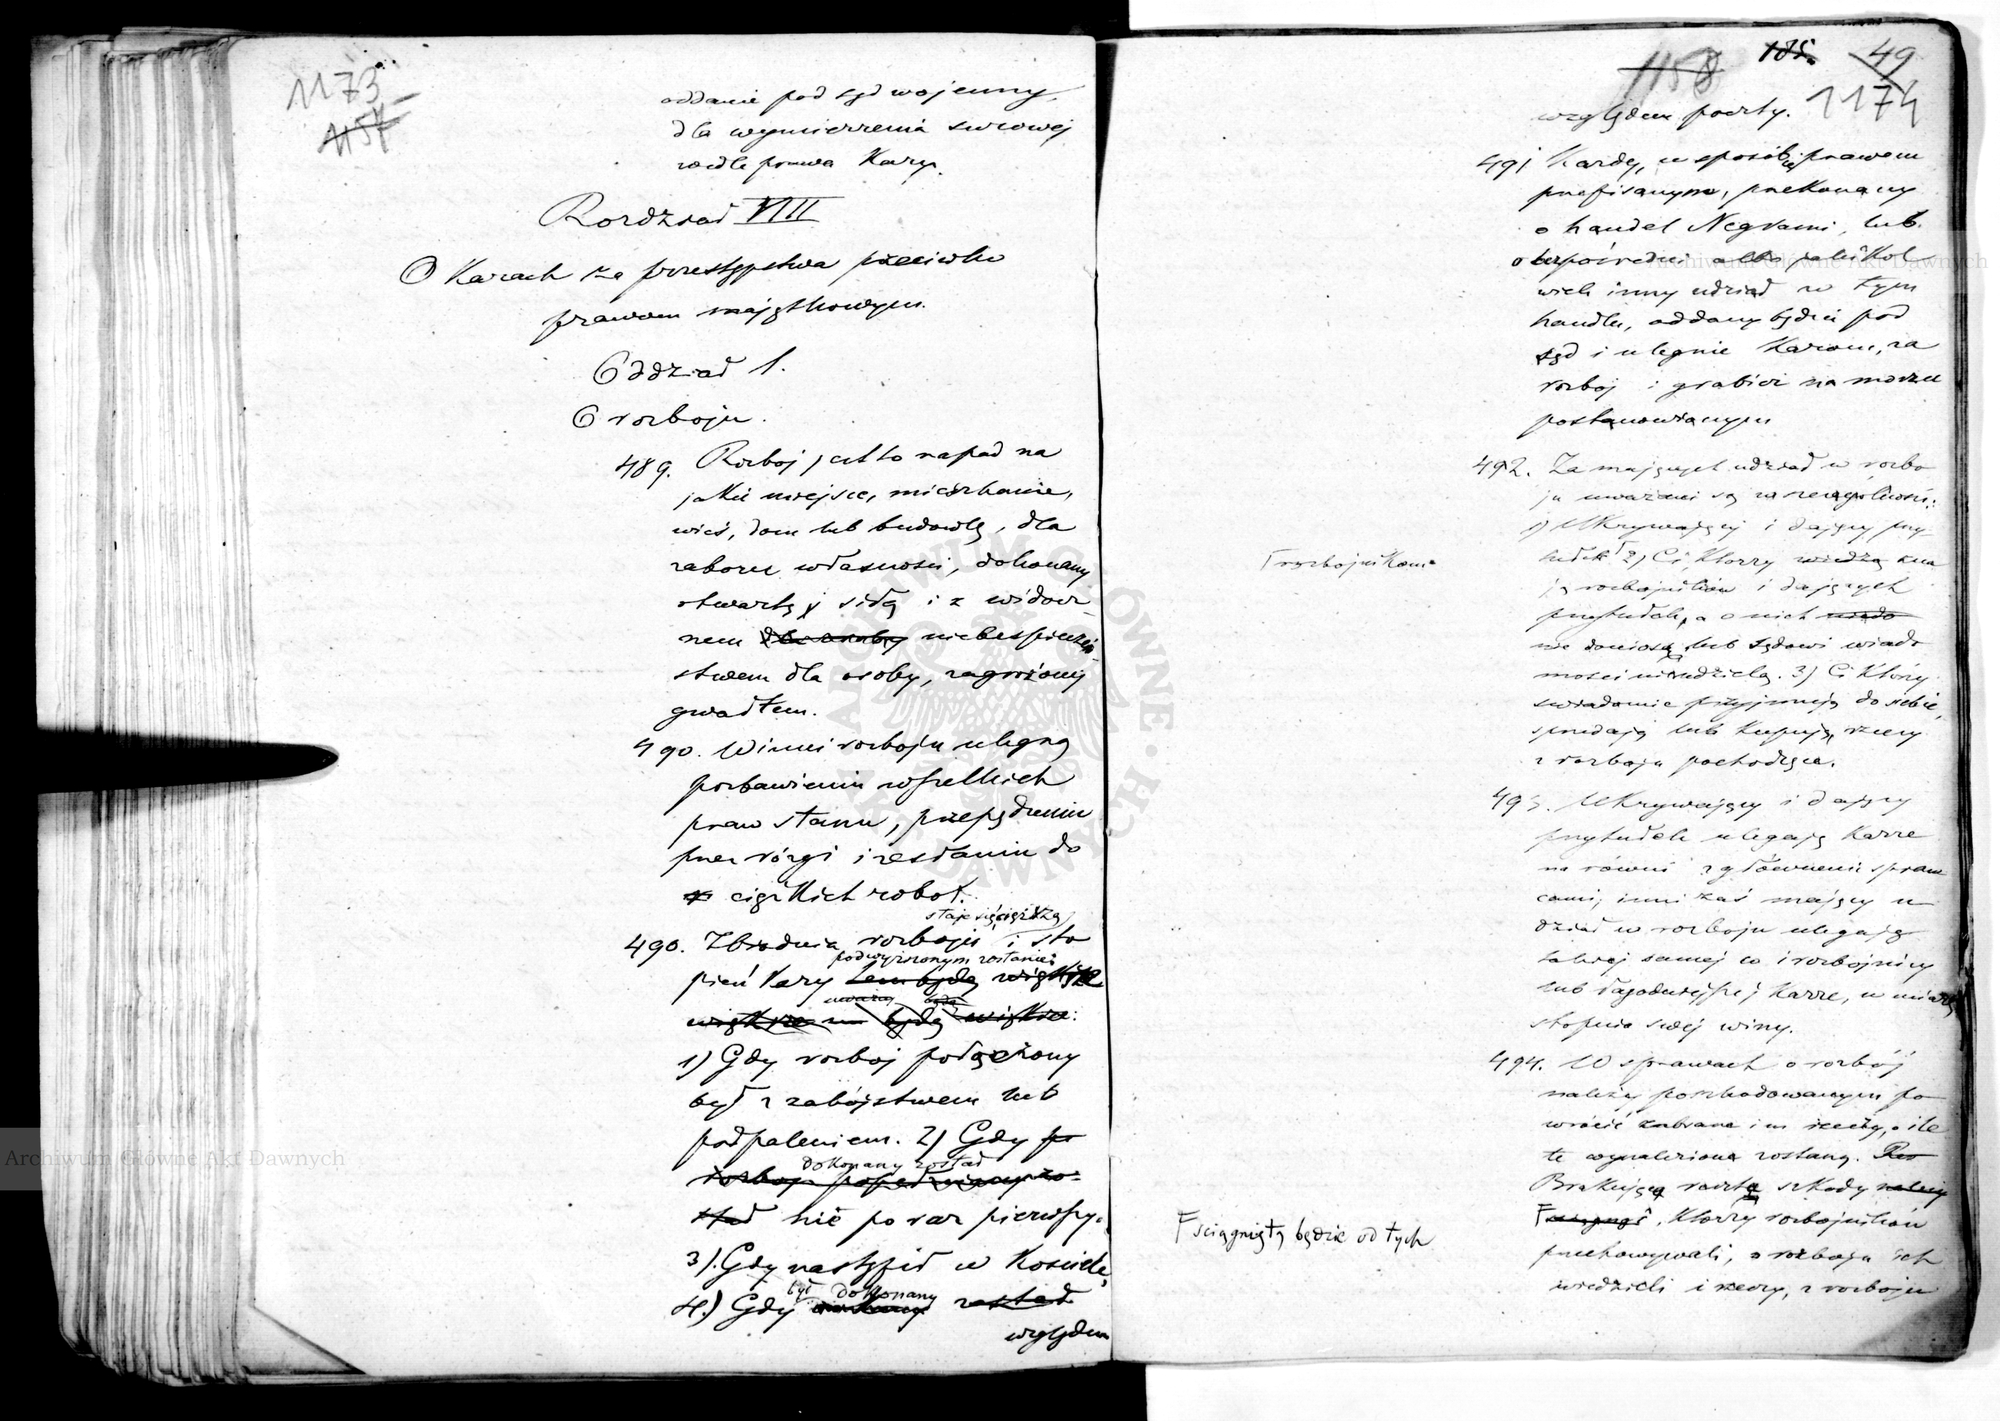 1173
1157
oddanie pod sąd wojenny,
dla wymierzenia surowej
wedle prawa Kary.
Rozdział VIII
O Karach za przestępstwa przeciwko
prawom majątkowym.
Oddział 1.
O rozboju.
489. Rozboj jest to napad na
jakie miejsce, mieszkanie,
wieś, dom lub budowlę, dla
zaboru własności, dokonany
otwartą siłą i z widocz-
nem dla osoby niebezpieczeń-
stwem dla osoby, zagrożony
gwałtem.
490. Winni rozboju ulegną
pozbawieniu wszelkich
praw stanu, przepędzeniu
przez rózgi i zesłaniu do
ciężkich robot.
staje się cięższą
490. Zbrodnia rozboju i sto
podwyższonym zostanie:
pień kary tem będą większe
uważa będą
większe będą większe:
1) Gdy rozboj połączony
był z zabójstwem lub
podpaleniem. 2) Gdy po
dokonany został
rozboj popełniony zo-
stał nie po raz pierwszy.
3). Gdy nastąpił w Kosciele,
był dokonany
4.) Gdy dokonany został
względem
1158 185. 49
1174
względem poczty.
491 Każdy, w sposób prawem
prefisanym, przekonany
o handel Negrami, lub
o bezpośredni albo jakikol
wiek inny udział w tym
handlu, oddany będzie pod
sąd i ulegnie Karom, za
rozboj i grabież na morzu
postanowionym
492. Za mających udział w rozbo
ju uważani są w szczególności:
1) Ukrywający i dający przy-
tułek 2) Ci, Którzy wiedzą zna
ją rozbojników i dających
przytułek, a o nich wiado
nie doniosą lub Sądowi wiado
mości nie udzielą. 3) Ci Którzy
swiadomie przyjmują do siebie,
sprzedają lub Kupują rzeczy
z rozboju pochodzące.
Γ rozbojnikom
493. Ukrywający i dający
przytułek ulegają Karze
na równi z głównemi spraw
cami; inni zaś mający u-
dział w rozboju ulegają
takiej samej co i rozbojnicy
lub łagodniejszej Karze, w miarę
stopnia swej winy.
494. W sprawach o rozbój
należy poszkodowanym po
wrócić zabrane im rzeczy, o ile
te wynalezione zostaną. Res
Brakująca reszta szkody należy
Γ sciągnięta będzie od tych
, Którzy rozbojników
przechowywali, o rozboju ich
wiedzieli i rzeczy, z rozboju
Archiwum Główne Akt Dawnych
Archiwum Główne Akt Dawnych
ARCHIWUM GŁÓWNE AKT DAWNYCH